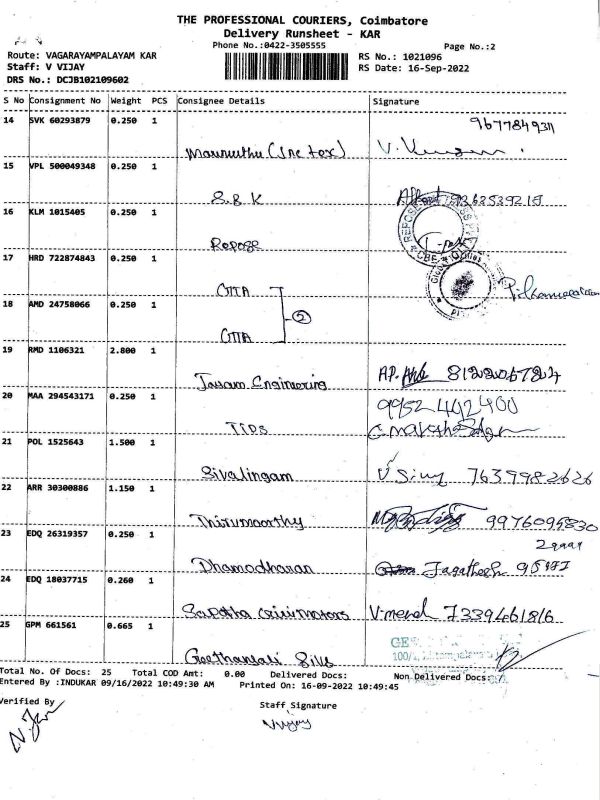 THE PROFESSIONAL COURIERS, Coimbatore
Delivery Runsheet - KAR
Phone No.:0422-3505555
Page No.:2
Route: VAGARAYAMPALAYAM KAR
Staff: V VIJAY
DRS No.: DCJB102109602
RS No.: 1021096
RS Date: 16-Sep-2022
S No Consignment No Weight PCS Consignee Details Signature
14 SVK 60293879 0.250 1
9677849311
15 VPL 500049348 0.250 1
S.B.K
16 KLM 1015405 0.250 1
Repose
17 HRD 722874843 0.250 1
GTTA
18 AMD 24758066 0.250 1
2
GTTA
19 RMD 1106321 2.800 1
Engineering
20 MAA 294543171 0.250 1
9952442400
TIPS
21 POL 1525643 1.500 1
Sivalingam 7639982626
22 ARR 30300886 1.150 1
Thirumoorthy 9976095830
23 EDQ 26319357 0.250 1
Dhamodharan Jagatheesh
24 EDQ 18037715 0.260 1
motors 7339461816
25 GPM 661561 0.665 1
Total No. Of Docs: 25 Total COD Amt: 0.00 Delivered Docs: Non Delivered Docs:
Entered By :INDUKAR 09/16/2022 10:49:30 AM Printed On: 16-09-2022 10:49:45
Verified By
Staff Signature
Vijay